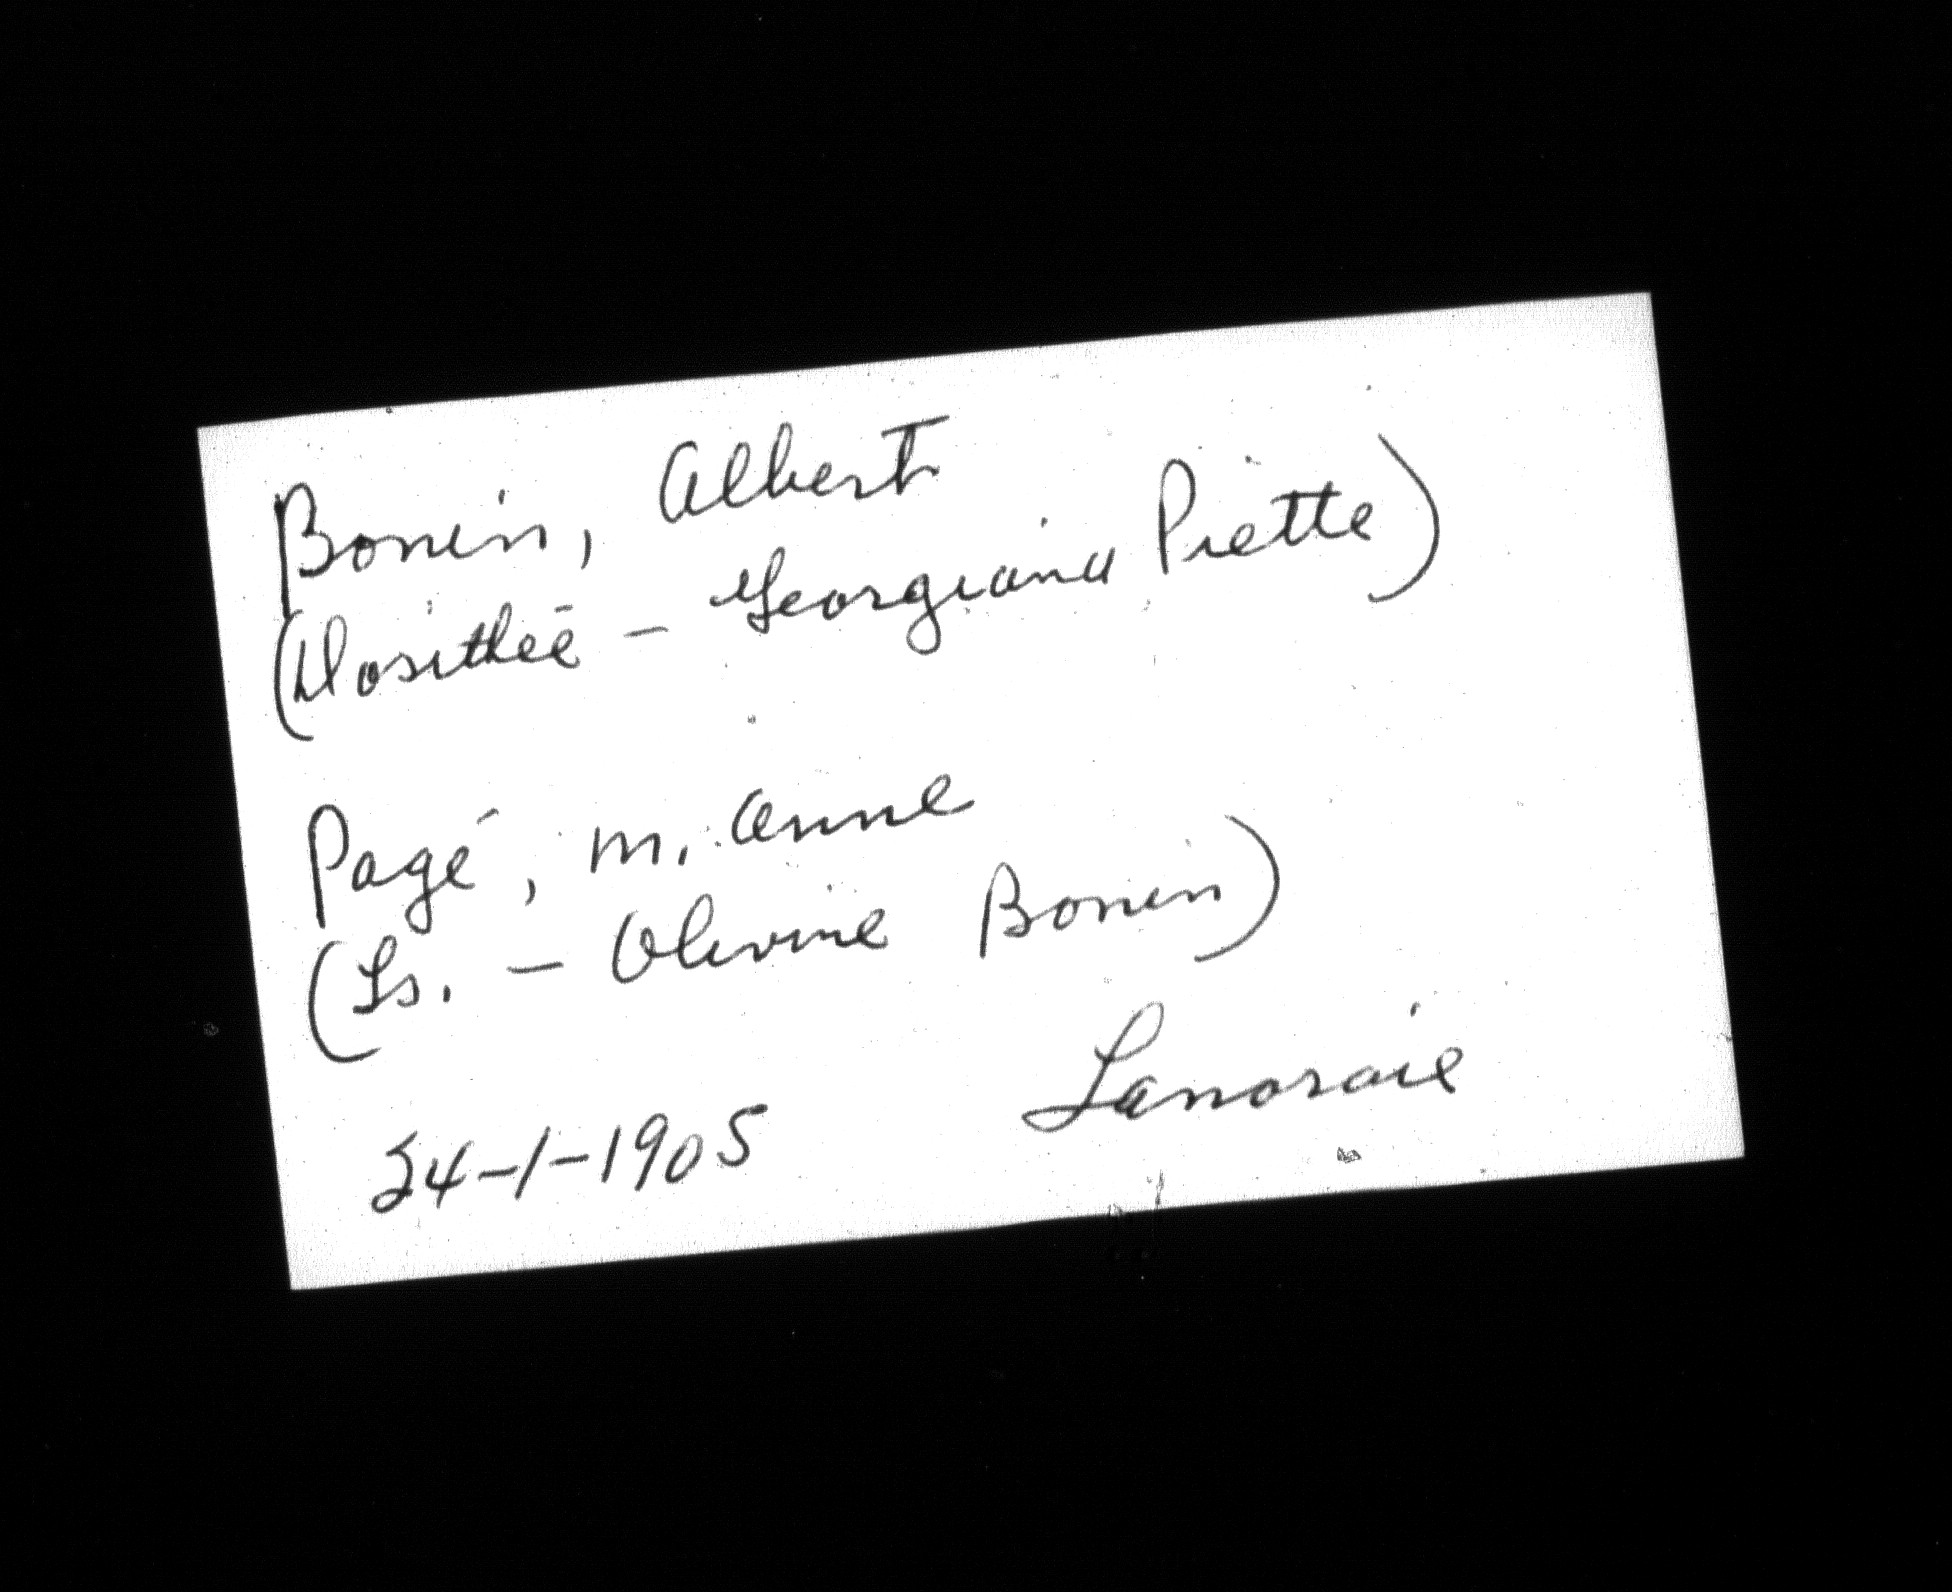 Bonin, Albert
(Dosithée - Georgiana Piette)
Pagé, M. Anne
(Ls. - Olivine Bonin)
24-1-1905 Lanoraie